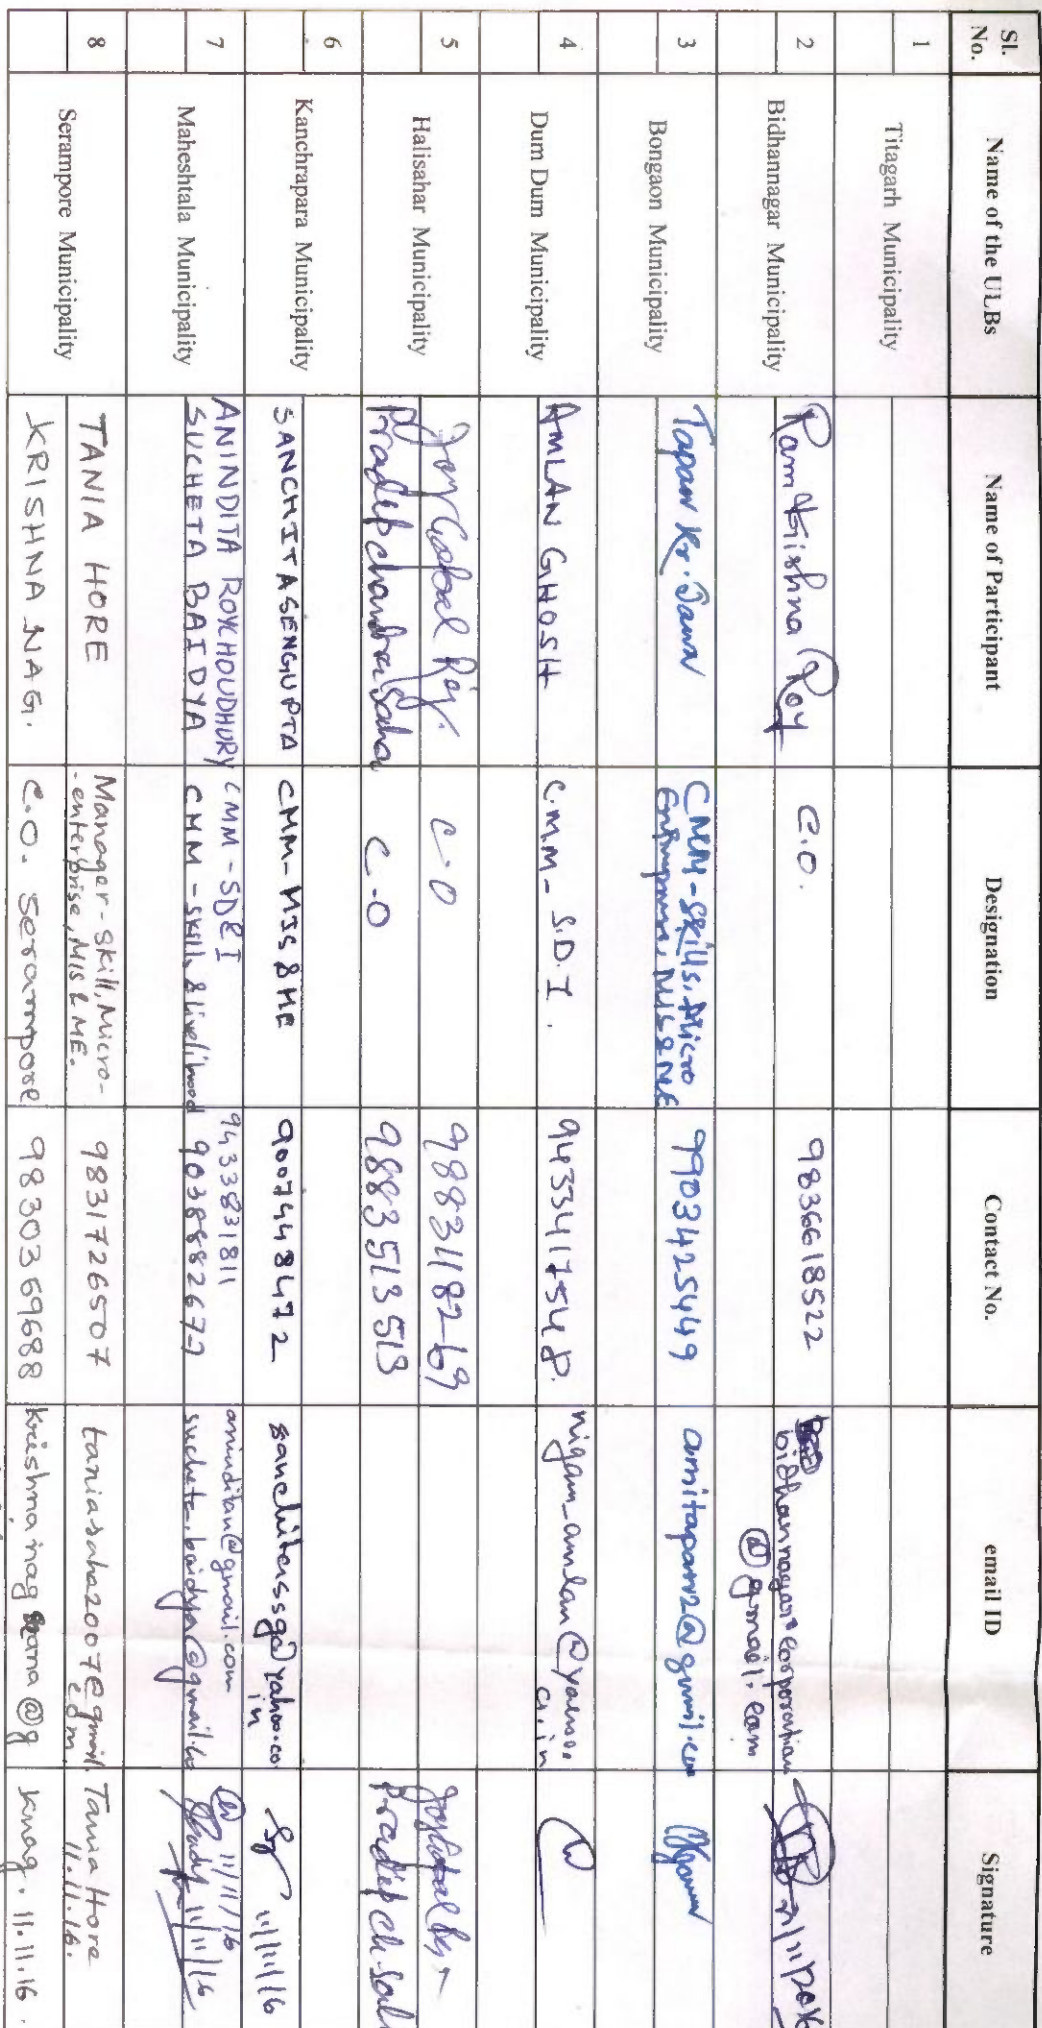 Sl. No. Name of the ULBs Name of Participant Designation Contact No. email ID Signature
1 Titagarh Municipality
2 Bidhannagar Municipality Ram Krishna Roy C.O. 9836618522 bidhannagar corporation
@gmail.com
3 Bongaon Municipality Tapan Kr. Jana CMM-Skills, Micro 9903425449
MIS & ME
4 Dum Dum Municipality AMLAN GHOSH C.M.M- S.D.I. 9433417548. nigam_amlan@yahoo.
co.in
5 Halisahar Municipality Joy Gopal Roy. C-O 9883118269
Pradip chandra Saha C-O 9883513513 Pradip Ch. Sah
6 Kanchrapara Municipality SANCHITA SENGUPTA CMM-MIS & ME 9007448472 11/11/16
7 Maheshtala Municipality ANINDITA ROYCHOUDHURY CMM-SD & I 9433831811 @gmail.com 11/11/16
SUCHETA BAIDYA CMM-Skill, & livelihood sucheta.baidya@gmail.co 11/11/16
8 Serampore Municipality TANIA HORE Manager-skill, Micro-
enterprise, MIS & ME. 9831726507 taniasaha2007@gmail.
com Tania Hore
11.11.16.
KRISHNA NAG. C.O. Serampore 9830369688 Knag. 11.11.16.